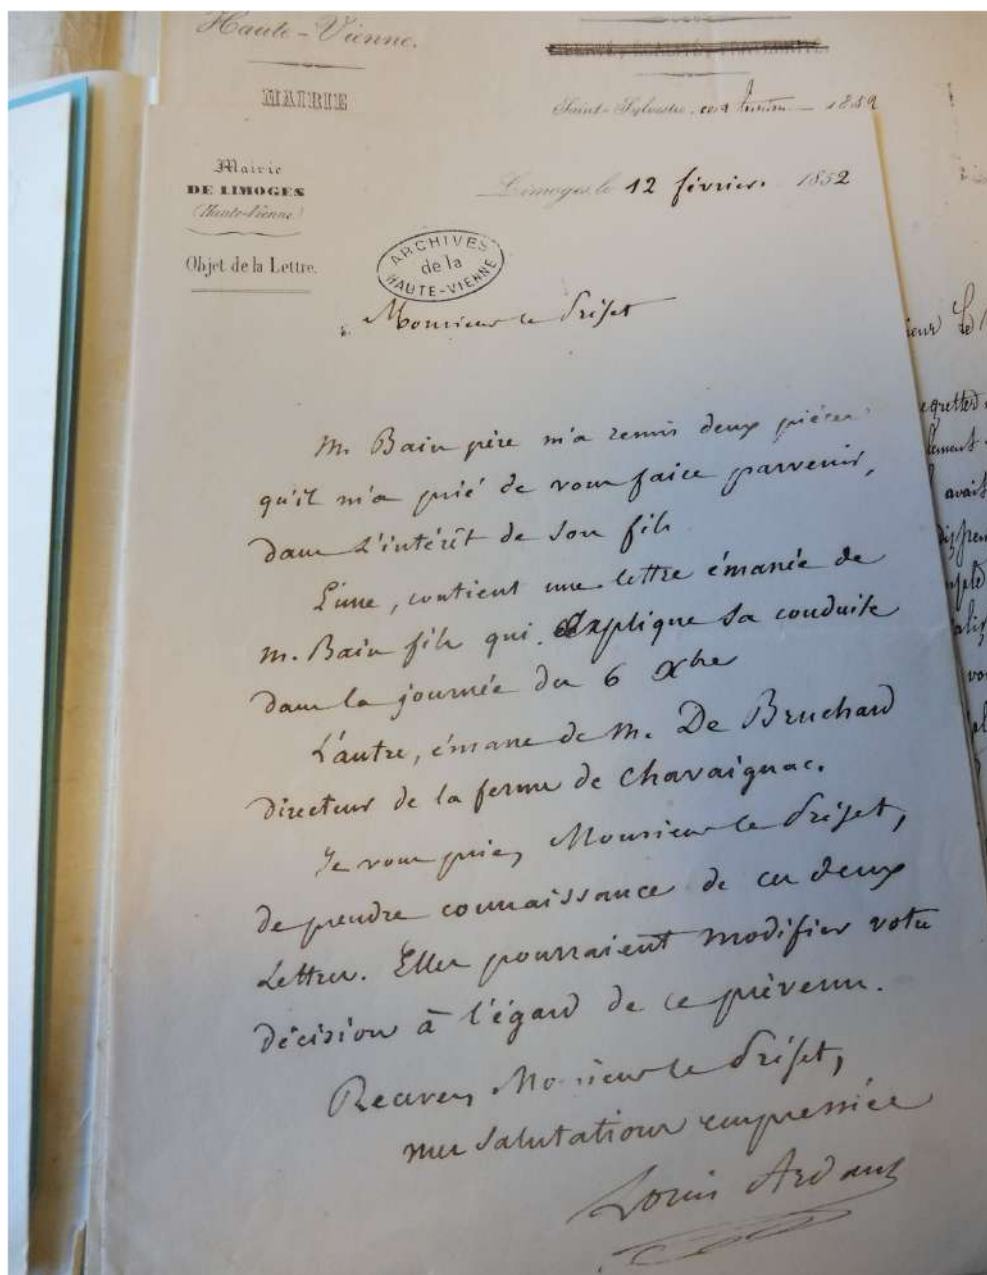 Haute-Vienne.
MAIRIE
LIBERTÉ, ÉGALITÉ, FRATERNITÉ.
Saint-Sylvestre, 1852
Mairie
DE LIMOGES
(Haute-Vienne)
Objet de la Lettre.
Limoges, le 12 février. 1852
ARCHIVES
de la
HAUTE-VIENNE
Monsieur le Préfet
M. Bain père m'a remis deux pièces
qu'il m'a prié de vous faire parvenir,
dans l'intérêt de son fils
L'une, contient une lettre émanée de
M. Bain fils qui explique sa conduite
dans la journée du 6 Xbre
L'autre, émane de M. De Bruchard
Directeur de la ferme de Chavaignac.
Je vous prie, Monsieur le Préfet,
de prendre connaissance de ces deux
Lettres. Elles pourraient modifier votre
décision à l'égard de ce prévenu.
Recevez, Monsieur le Préfet,
mes salutations empressées
Louis Ardant
ieur Le
avait